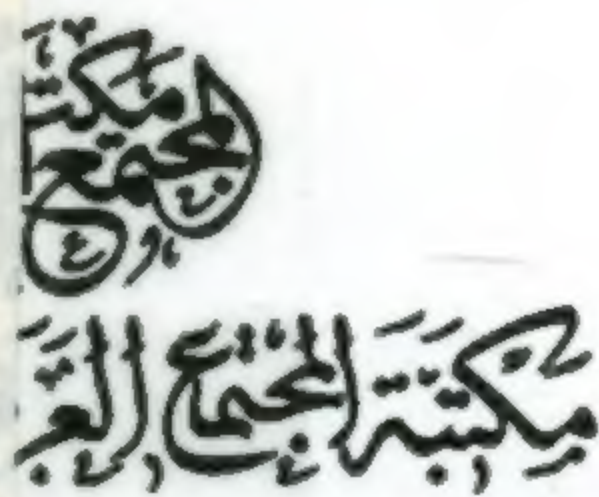 مكتبة
المجتمع
مكتبة المجتمع العر